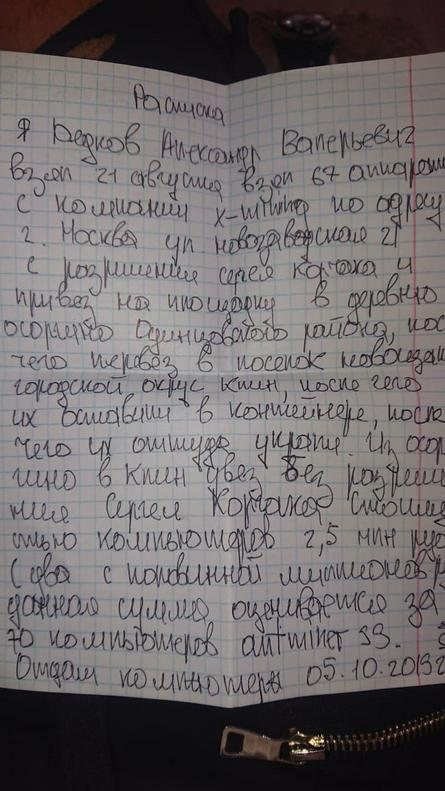 Расписка
Я Редков Александр Валерьевич
взял 21 августа взял 67 аппарат
с компании x-mining по адресу
г. Москва ул. новозаводская 21
с разришения сергея Корчака и
привез на площадку в деревню
осоргино Одинцовского района, пос
чего перевоз в поселок новощапо
городской округ клин, после чего
их оставили в контейнере, посл
чего их оттуда украли. Из осор
гино в Клин увез без разреш
ния Сергея Корчака Стоиме
стью компьютеров 2,5 млн руб
(два с половинной миллионов р
данная сумма оценивается за
70 компьютеров antminer S9.
Отдам компьютеры 05.10.2019г